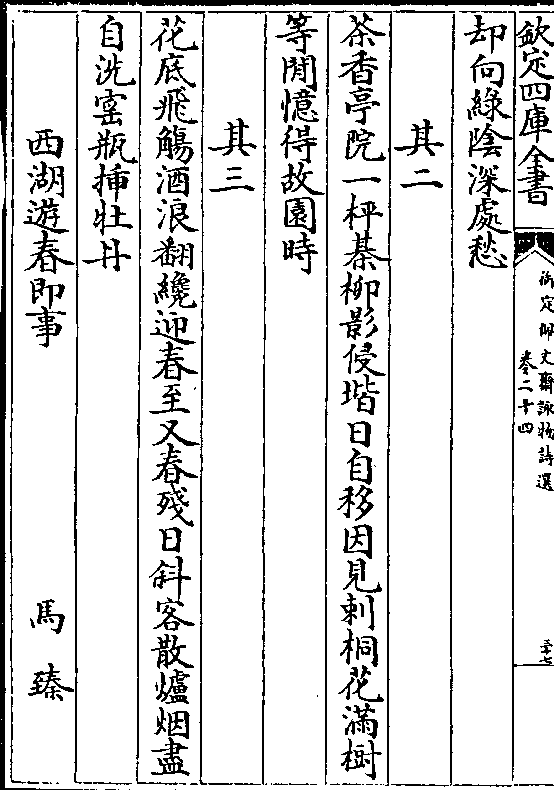 欽定四庫全書
御定佩文齋詠物詩選
卷二十四
三十七
却向綠陰深處愁
其二
茶香亭院一枰棊柳影侵堦日自移因見刺桐花滿樹
等閒憶得故園時
其三
花底飛觴酒浪翻纔迎春至又春殘日斜客散爐烟盡
自洗窰瓶揷牡丹
西湖遊春即事 馬臻